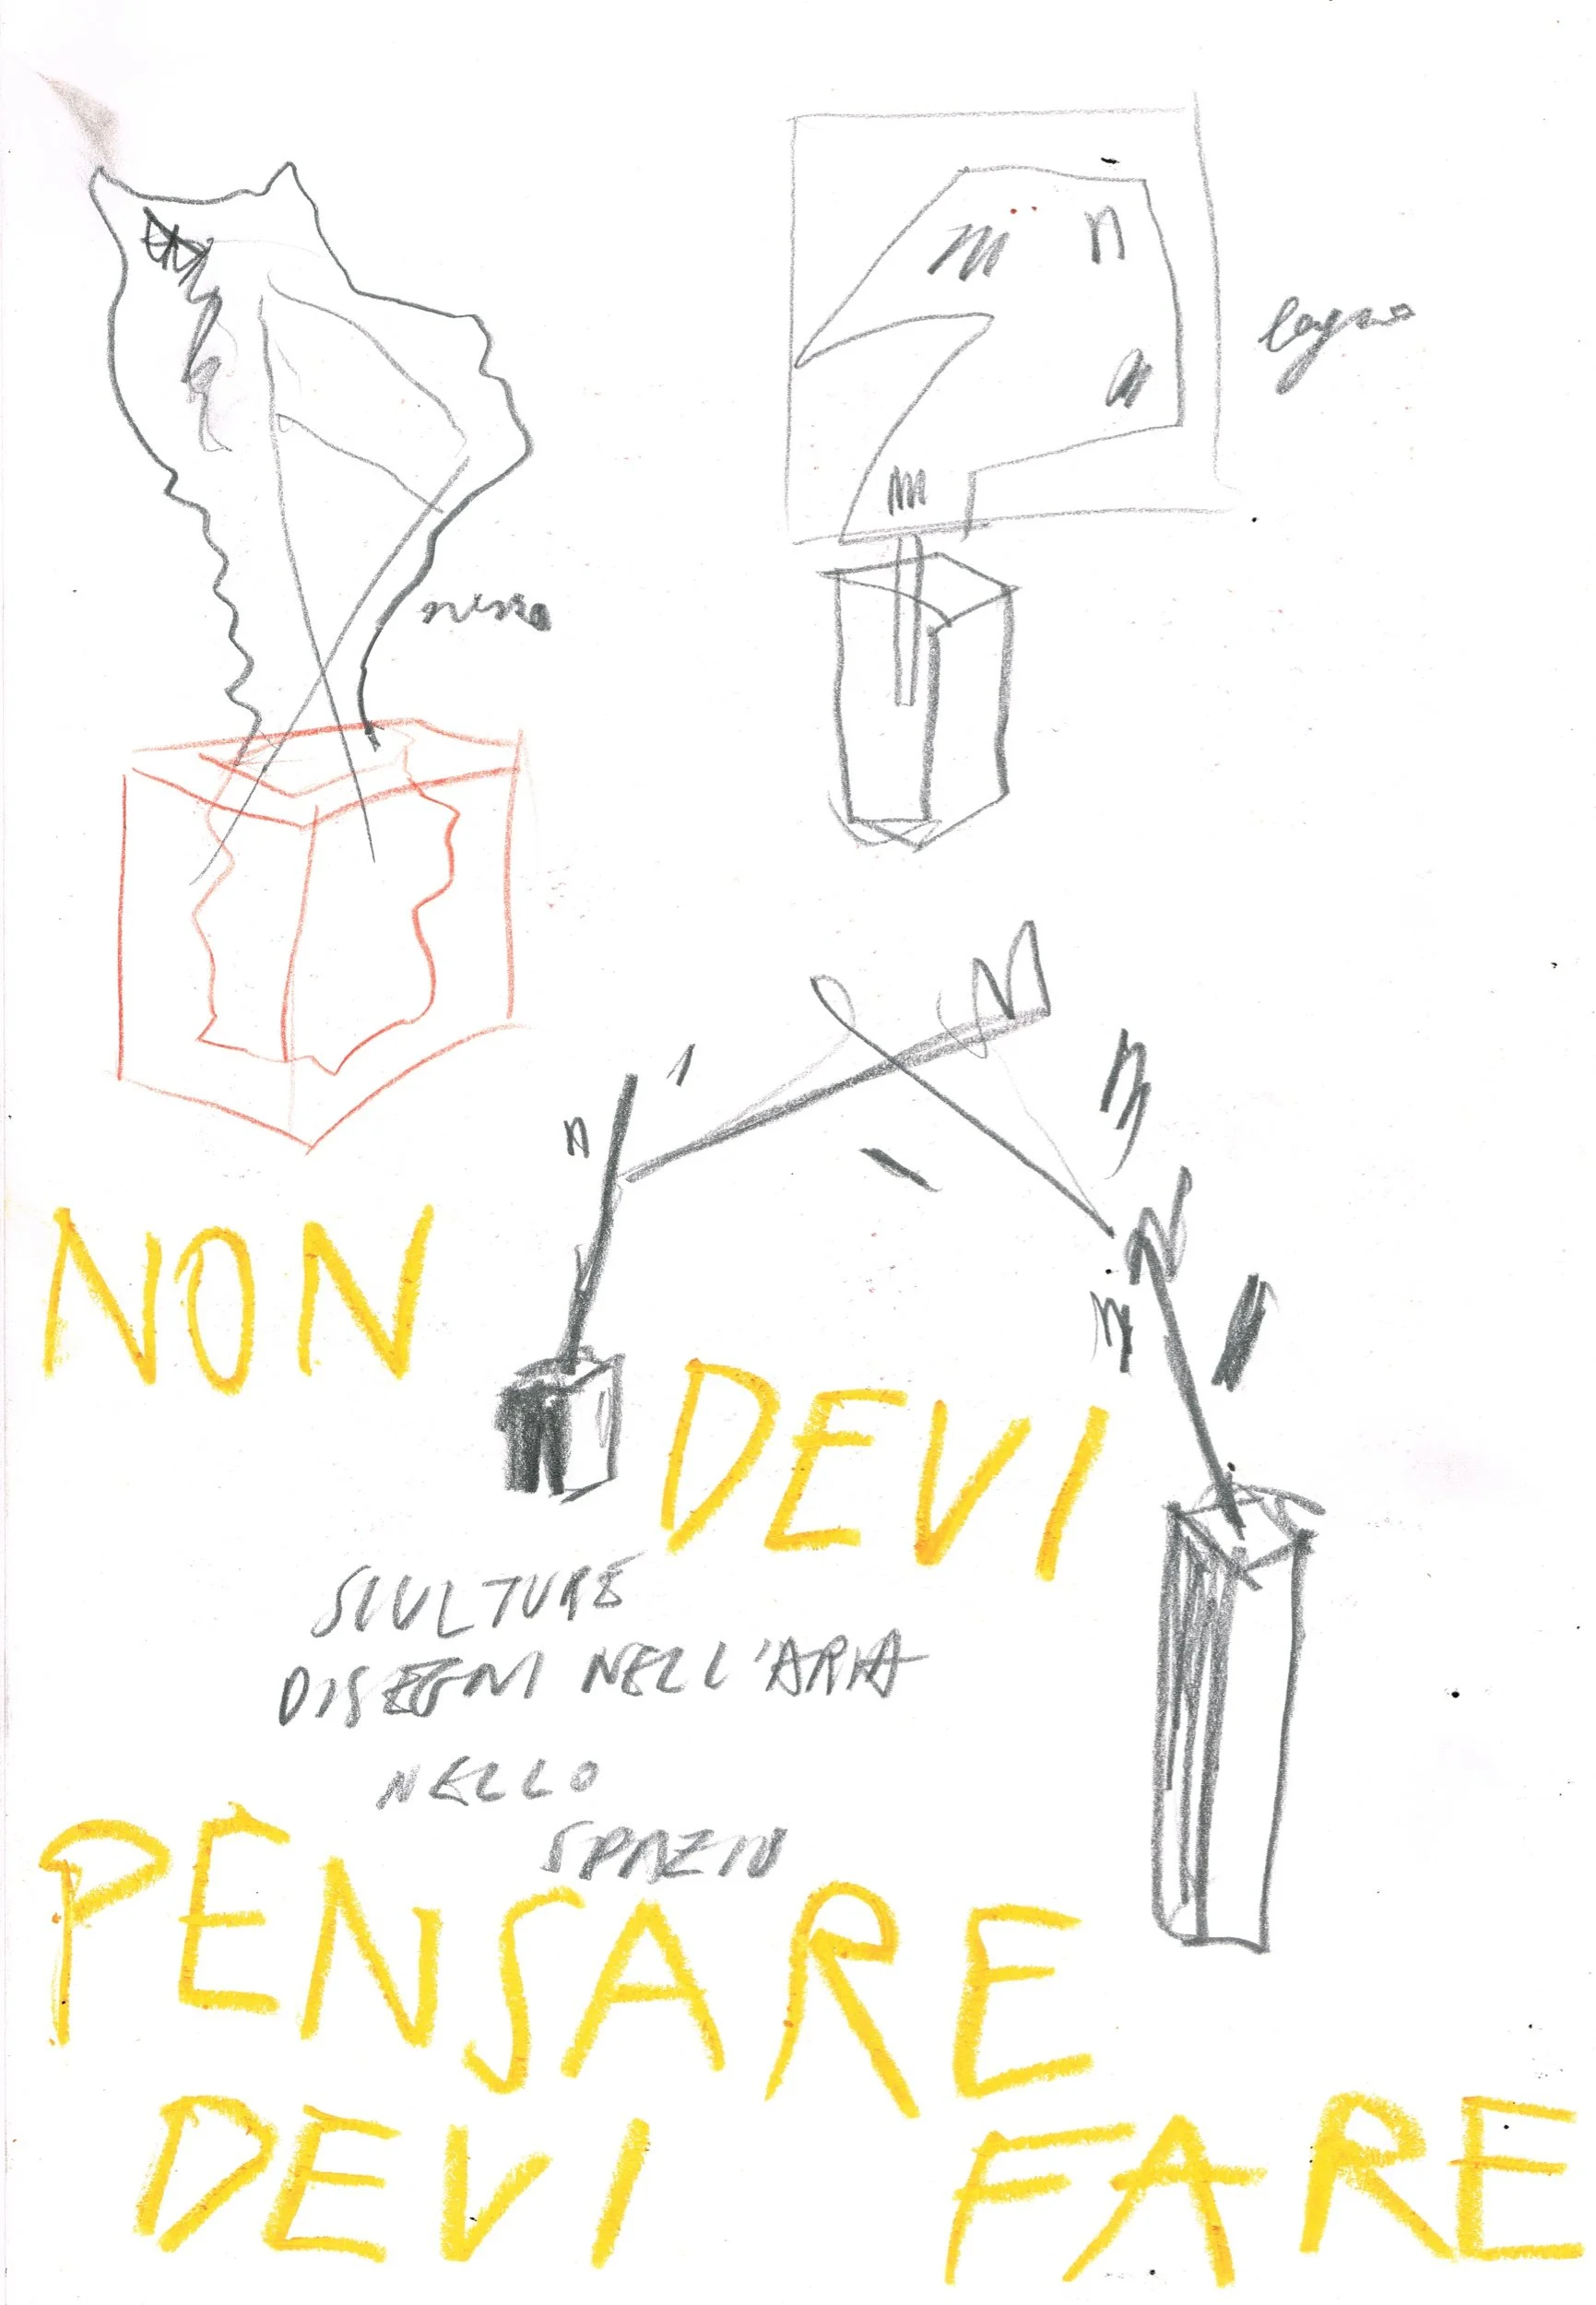 legno
NON
DEVI
SCULTURE
DISEGNI NELL'ARIA
NELLO
SPAZIO
PENSARE
DEVI FARE